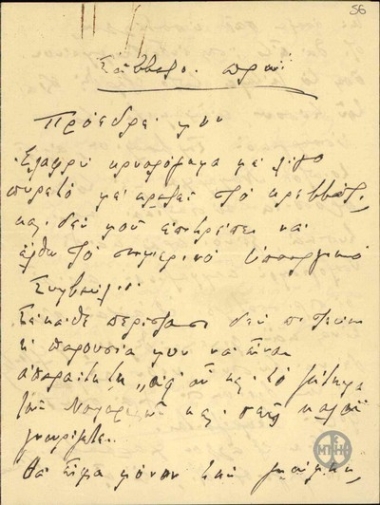 56
Σάββατο πρωί
Πρόεδρέ μου
Ελαφρύ κρυολόγημα με λίγο
πυρετό με κρατεί στο κρεββάτι,
και δεν μου επιτρέπει να
έλθω στο σημερινό Υπουργικό
Συμβούλιο.
Σε κάθε περίσταση δεν πιστεύω
η παρουσία μου να είναι
απαραίτητη, αφ' ου και το ζήτημα
των και σεις καλά
γνωρίζετε.
Θα είμαι μόνον την γνώμην,